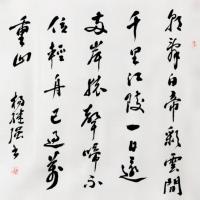 朝辭白帝彩雲間
千里江陵一日還
兩岸猿聲啼不
住輕舟已過萬
重山